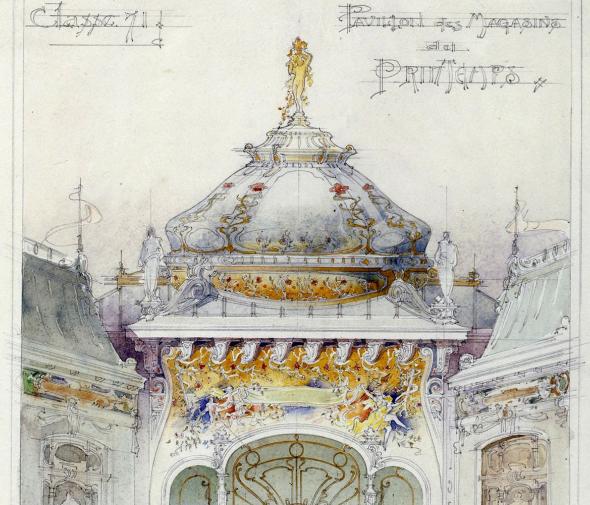 Classe 71
Pavillon des Magasins
du
Printemps